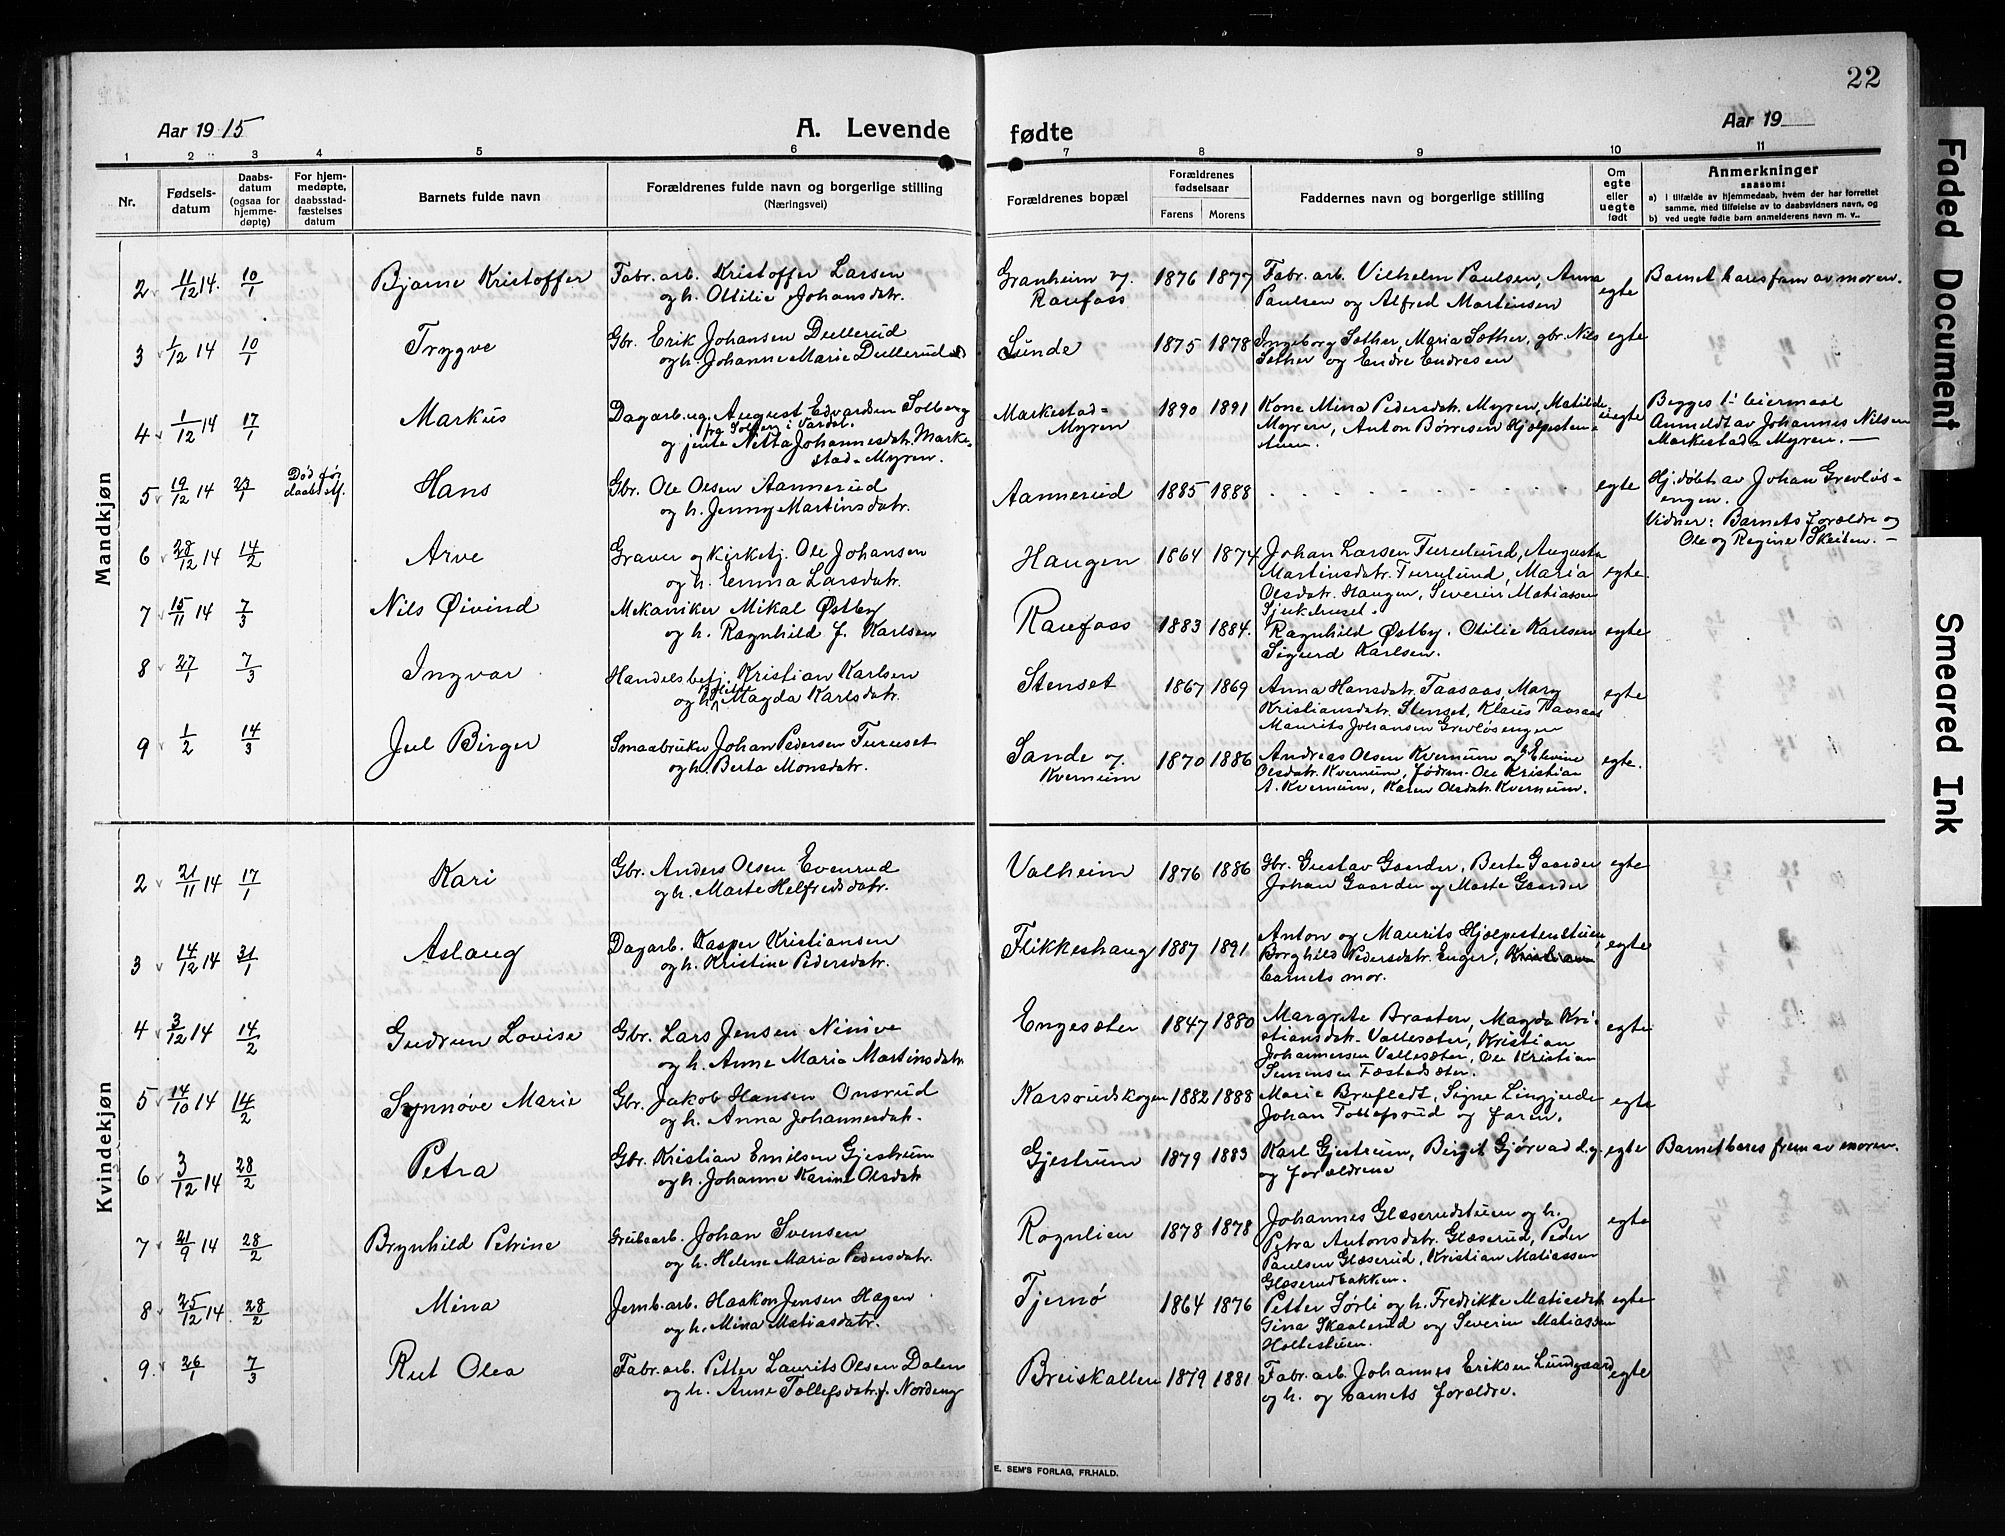 22
Aar 1915
A. Levende
fødte
Aar 19
1 2 3 4 5 6 7 8 9 10 11
Nr.
Fødsels-
datum
Daabs-
datum
(ogsaa for
hjemme-
døpte)
For hjem-
medøpte,
daabsstad-
fæstelses
datum
Barnets fulde navn
Forældrenes fulde navn og borgerlige stilling
(Næringsvei)
Forældrenes bopæl
Forældrenes
fødselsaar
Farens
Morens
Faddernes navn og borgerlige stilling
Om
egte
eller
uegte
født
Anmerkninger
saasom:
a) i tilfælde av hjemmedaab, hvem der har forrettet
samme, med tilføielse av to daabsvidners navn, og
b) ved uegte fødte barn anmelderens navn m. v..
Mandkjøn
2 11/12 14. 10/1 Bjarne Kristoffer Fabr. arb. Kristoffer Larsen
og h. Ottilie Johansdatr.
Granheim v.
Raufoss
1876 1877 Fabr. arb. Vilhelm Paulsen, Anna
Paulsen og Alfred Martinsen
egte Barnet bares fram av moren.
3 1/12 14 10/1 Trygve Gbr. Erik Johansen Dullerud
og h. Johanne Marie Dullerud
Sunde 1875 1878 Ingeborg Sether, Maria Sæther, gbr. Nils
Sether og Endre Endresen
egte
4 1/12 14 17/1 Markus Dagarb. ug. August Edvardsen Solberg
fra Solberg i Vardal
og jente Netta Johannesdatr. Marke-
stad-Myren.
Markestad-
Myren
1890 1891 Kone Mina Pedersdatr. Myren, Matilde
Myren, Anton Børresen Hjælpesten-
stuen.
uegte Begges 1ste leiermaal
Anmeldt av Johannes Nilsen
Markestad-Myren.
5 19/12 14 Død før
daabst.f.
Hans Gbr. Ole Olsen Aannerud
og h. Jenny Martinsdatr.
Aannerud 1885 1888 egte Hj.døbt av Johan Grevløs-
engen.
Vidner: Barnets forældre og
Ole og Regine Skeiten.
6 28/12 14 14/2 Arve Graver og kirketj. Ole Johansen
og h. Emma Larsdatr.
Haugen 1864 1874 Johan Larsen Turulund, Augusta
Martinsdatr. Turulund, Maria
Olsdatr. Haugen, Severin Matiassen
Sjukehuset.
egte.
7 15/11 14 7/3 Nils Øivind Mekaniker Mikal Østby
og h. Ragnhild f. Karlsen
Raufoss 1883 1884. Ragnhild Østby. Otilie Karlsen
Sigurd Karlsen.
egte
8 27/1 7/3 Ingvar Handelsbetj. Kristian Karlsen
og h. Magda Karlsdatr.
Stenset 1867 1869 Anna Hansdatr. Taasaas, Mary
Kristiansdatr. Stenset, Klaus Taasaas
Maurits Johansen Grevløsengen
egte
9 1/2 14/3 Jul Birger Smaabruker Johan Pedersen Turuset
og h. Berta Monsdatr.
Sande v.
Kvernum
1870 1886 Andreas Olsen Kvernum og Elevine
Olsdatr. Kvernum, Jødrm. Ole Kristian
A. Kvernum, Karen Olsdatr. Kvernum.
egte.
Kvindekjøn
2 21/11 14 17/1 Kari Gbr. Anders Olsen Evenrud
og h. Marte Helfredsdatr.
Valheim 1876 1886 Gbr. Gustav Gaarder, Berte Gaarder
Johan Gaarder og Marte Gaarder
egte
3 14/12 14 31/1 Aslaug Dagarb. Kasper Kristiansen
og h. Kristine Pedersdatr.
Flikkeshaug 1887 1891 Anton og Maurits Hjælpestenstuen,
Borghild Pedersdatr. Enger,
barnets mor.
egte
4 3/12 14 14/2 Gudrun Lovise Gbr. Lars Jensen Ninive
og h. Anne Maria Martinsdatr
Engesæter 1847 1880 Margrete Braaten, Magda Kri-
stiansdatr. Vallesæter, Kristian
Johannersen Vallesæter, Ole Kristian
Simensen Fæstadsæter.
egte
5 14/10 14 14/2 Synnøve Marie Gbr. Jakob Hansen Onsrud
og h. Anna Johannesdatr.
Karsrudskogen 1882 1888 Marie Brufledt, Signe Lingjerde
Johan Tollefsrud og faren.
egte
6 3/12 14 28/2 Petra Gbr. Kristian Emilsen Gjestrum
og h. Johanne Karine Olsdatr
Gjestrum 1879 1883 Karl Gjestrum, Birgit Gjørvad d.y.
og forældrene
egte Barnet bares frem av moren.
7 21/9 14 28/2 Brynhild Petrine Grubearb. Johan Svensen
og h. Helene Maria Pedersdatr.
Rognlien 1878 1878 Johannes Glæserudstuen og h.
Petra Antonsdatr. Glæserud, Peder
Paulsen Glæserud, Kristian Matiassen
Glæserudbakken.
egte
8 25/12 14. 28/2 Mina Jernb. arb. Haakon Jensen Hagen
og h. Mina Matiasdatr.
Tjernø 1864 1876 Petter Sørli og h. Fredrikke Matiesdatr
Gina Skaalerud og Severin Matiassen
Holtestuen.
egte
9. 26/1 7/3 Rut Olea Fabr. arb. Petter Laurits Olsen Dalen
og h. Anne Tollefsdatr. f. Nordeng
Breiskallen 1879 1881 Fabr. arb. Johannes Eriksen Lundgaard
og h. og barnets forældre.
egte
E. SEM'S FORLAG, FR.HALD.
Faded Document
Smeared Ink